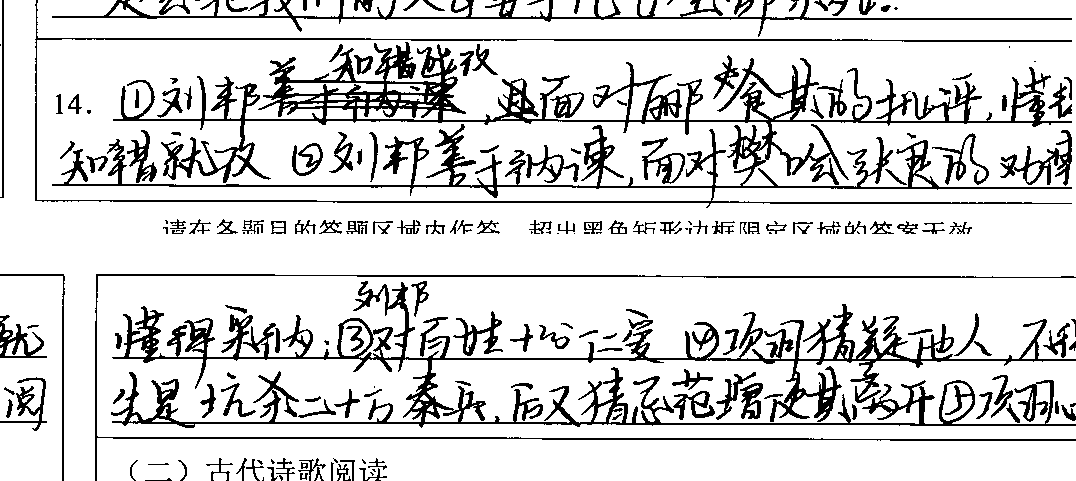 知错能改
14. ①刘邦善于纳谏,且面对郦食其的批评,懂
知错就改 ②刘邦善于纳谏,面对樊哙张良的劝谏
请在各题目的答题区域内作答,超出黑色矩形边框限定区域的答案无效
刘邦
就 懂得采纳;③对百姓十分仁爱 ④项羽猜疑他人,不
阅 先是坑杀二十万秦兵,后又猜忌范增使其离开⑤项羽心
(二)古代诗歌阅读